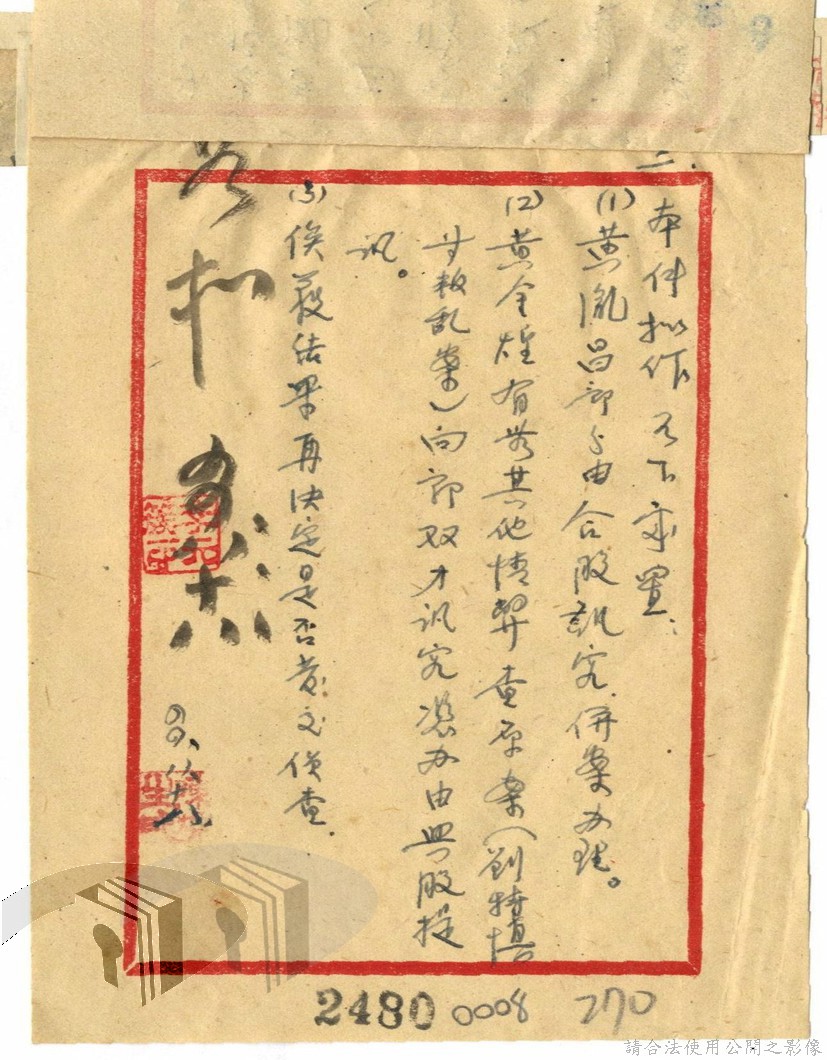 二、本件拟作如下處置：
(1)黃胤昌部分由合股訊究，併案办理。
(2)黃金煌有無其他情弊查原案(劉特慎
等叛乱案)向郭双才訊究憑办由興股提
訊。
(3)俟获結果再決定是否發文偵查。
如拟
2480 0008 270
請合法使用公開之影像